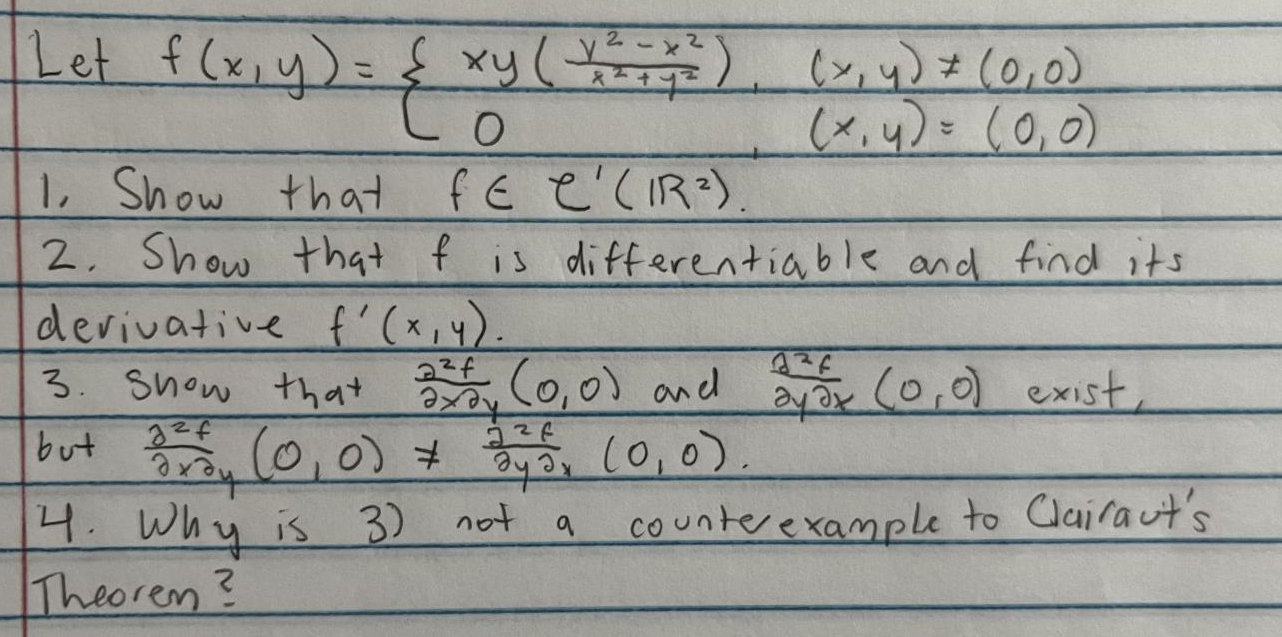 Let f(x,y) = { xy ( (y² - x²)/(x² + y²) ), (x,y) ≠ (0,0)
0, (x,y) = (0,0)
1. Show that f ∈ C'(ℝ²).
2. Show that f is differentiable and find its
derivative f'(x,y).
3. Show that ∂²f/∂x∂y (0,0) and ∂²f/∂y∂x (0,0) exist,
but ∂²f/∂x∂y (0,0) ≠ ∂²f/∂y∂x (0,0).
4. Why is 3) not a counterexample to Clairaut's
Theorem?